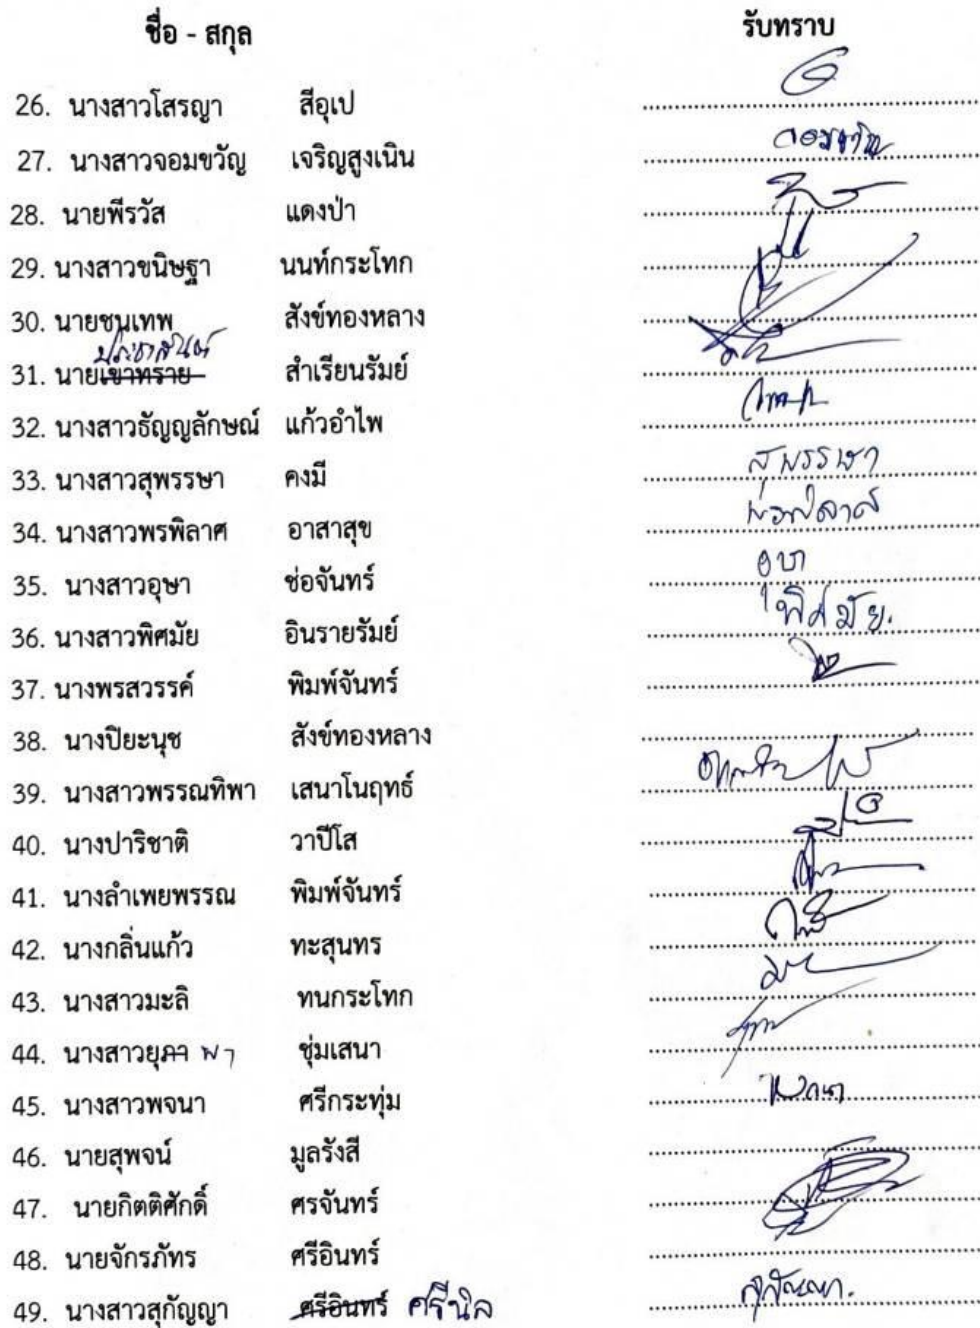 ชื่อ - สกุล รับทราบ
26. นางสาวโสรญา สีอุเป
27. นางสาวจอมขวัญ เจริญสูงเนิน จอมขวัญ
28. นายพีรวัส แดงป่า
29. นางสาวขนิษฐา นนท์กระโทก
30. นายชนเทพ สังข์ทองหลาง
31. นายเขาทราย สำเรียนรัมย์
32. นางสาวธัญญลักษณ์ แก้วอำไพ
33. นางสาวสุพรรษา คงมี สุพรรษา
34. นางสาวพรพิลาศ อาสาสุข พรพิลาศ
35. นางสาวอุษา ช่อจันทร์ อุษา
36. นางสาวพิศมัย อินรายรัมย์ พิศมัย.
37. นางพรสวรรค์ พิมพ์จันทร์
38. นางปิยะนุช สังข์ทองหลาง
39. นางสาวพรรณทิพา เสนาโนฤทธ์
40. นางปาริชาติ วาปีโส
41. นางลำเพยพรรณ พิมพ์จันทร์
42. นางกลิ่นแก้ว ทะสุนทร
43. นางสาวมะลิ ทนกระโทก
44. นางสาวยุภา พา ชุ่มเสนา
45. นางสาวพจนา ศรีกระทุ่ม พจนา
46. นายสุพจน์ มูลรังสี
47. นายกิตติศักดิ์ ศรจันทร์
48. นายจักรภัทร ศรีอินทร์
49. นางสาวสุกัญญา ศรีอินทร์ ศรีนิล สุกัญญา.